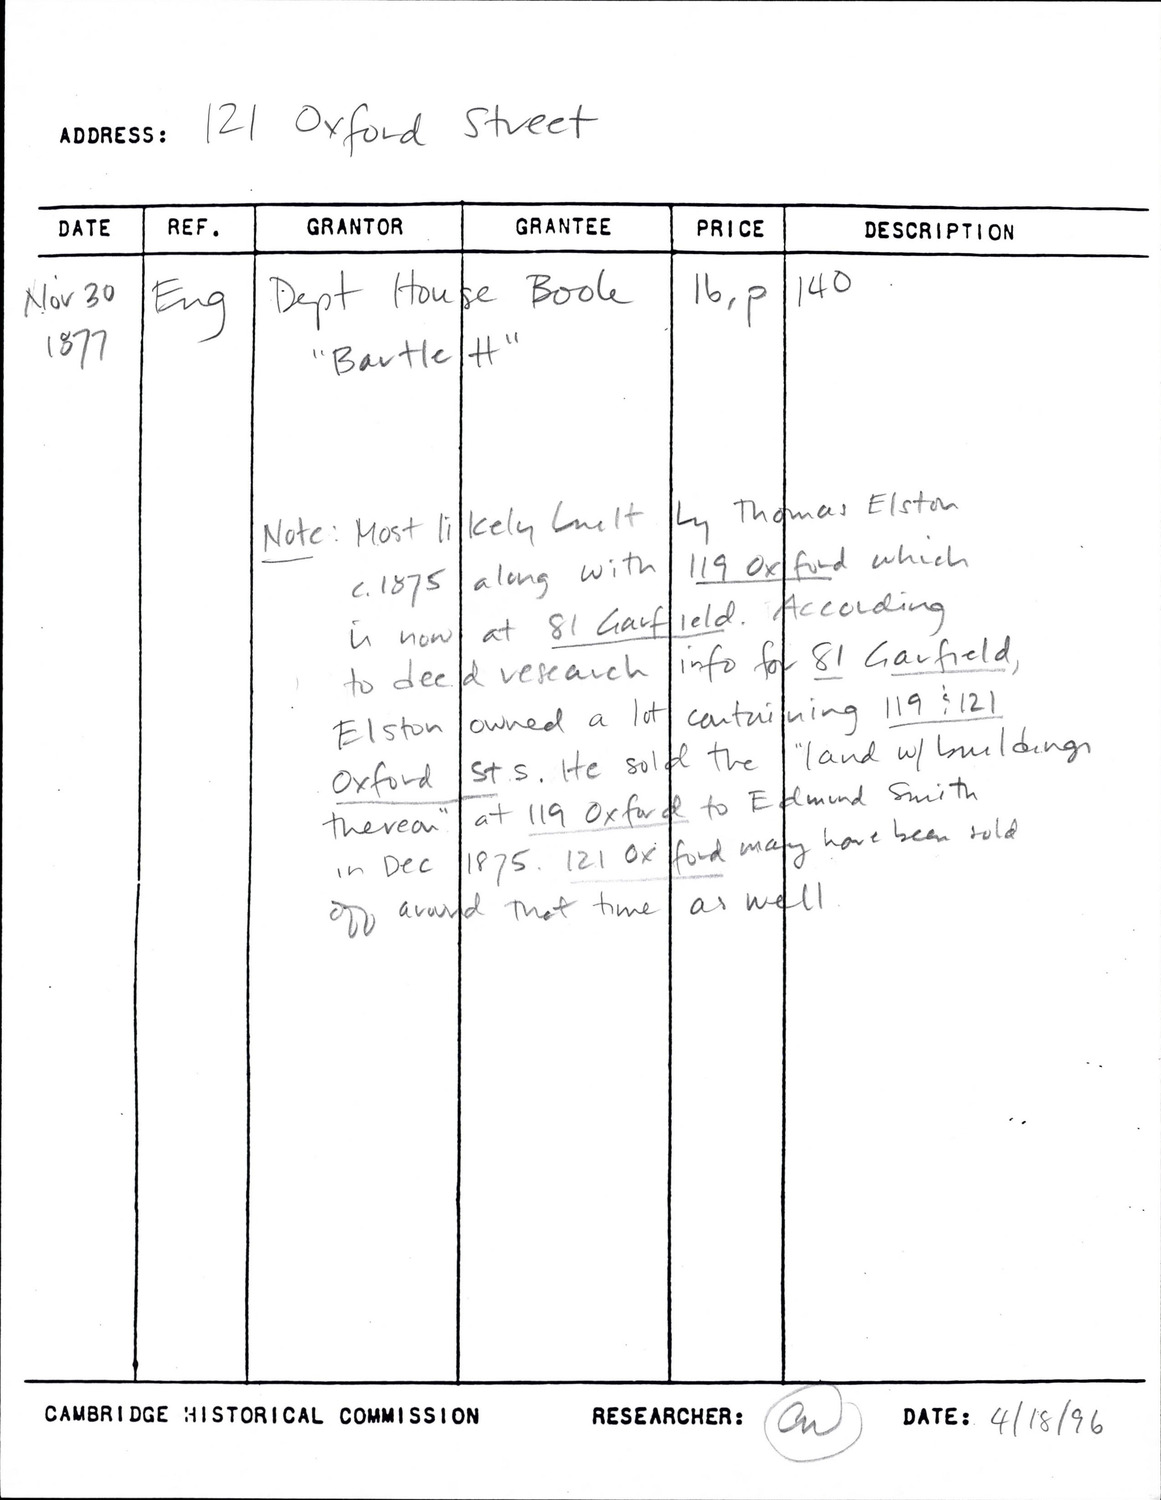 ADDRESS: 121 Oxford Street
DATE REF. GRANTOR GRANTEE PRICE DESCRIPTION
Nov 30 Eng Dept House Book 16, p 140
1877 "Bartlett"
Note: Most likely built by Thomas Elston
c. 1875 along with 119 Oxford which
is now at 81 Garfield. According
to deed research info for 81 Garfield,
Elston owned a lot containing 119 & 121
Oxford Sts. He sold the "land w/ buildings
thereon" at 119 Oxford to Edmund Smith
in Dec 1875. 121 Oxford may have been sold
off around that time as well
CAMBRIDGE HISTORICAL COMMISSION RESEARCHER: DATE: 4/18/96